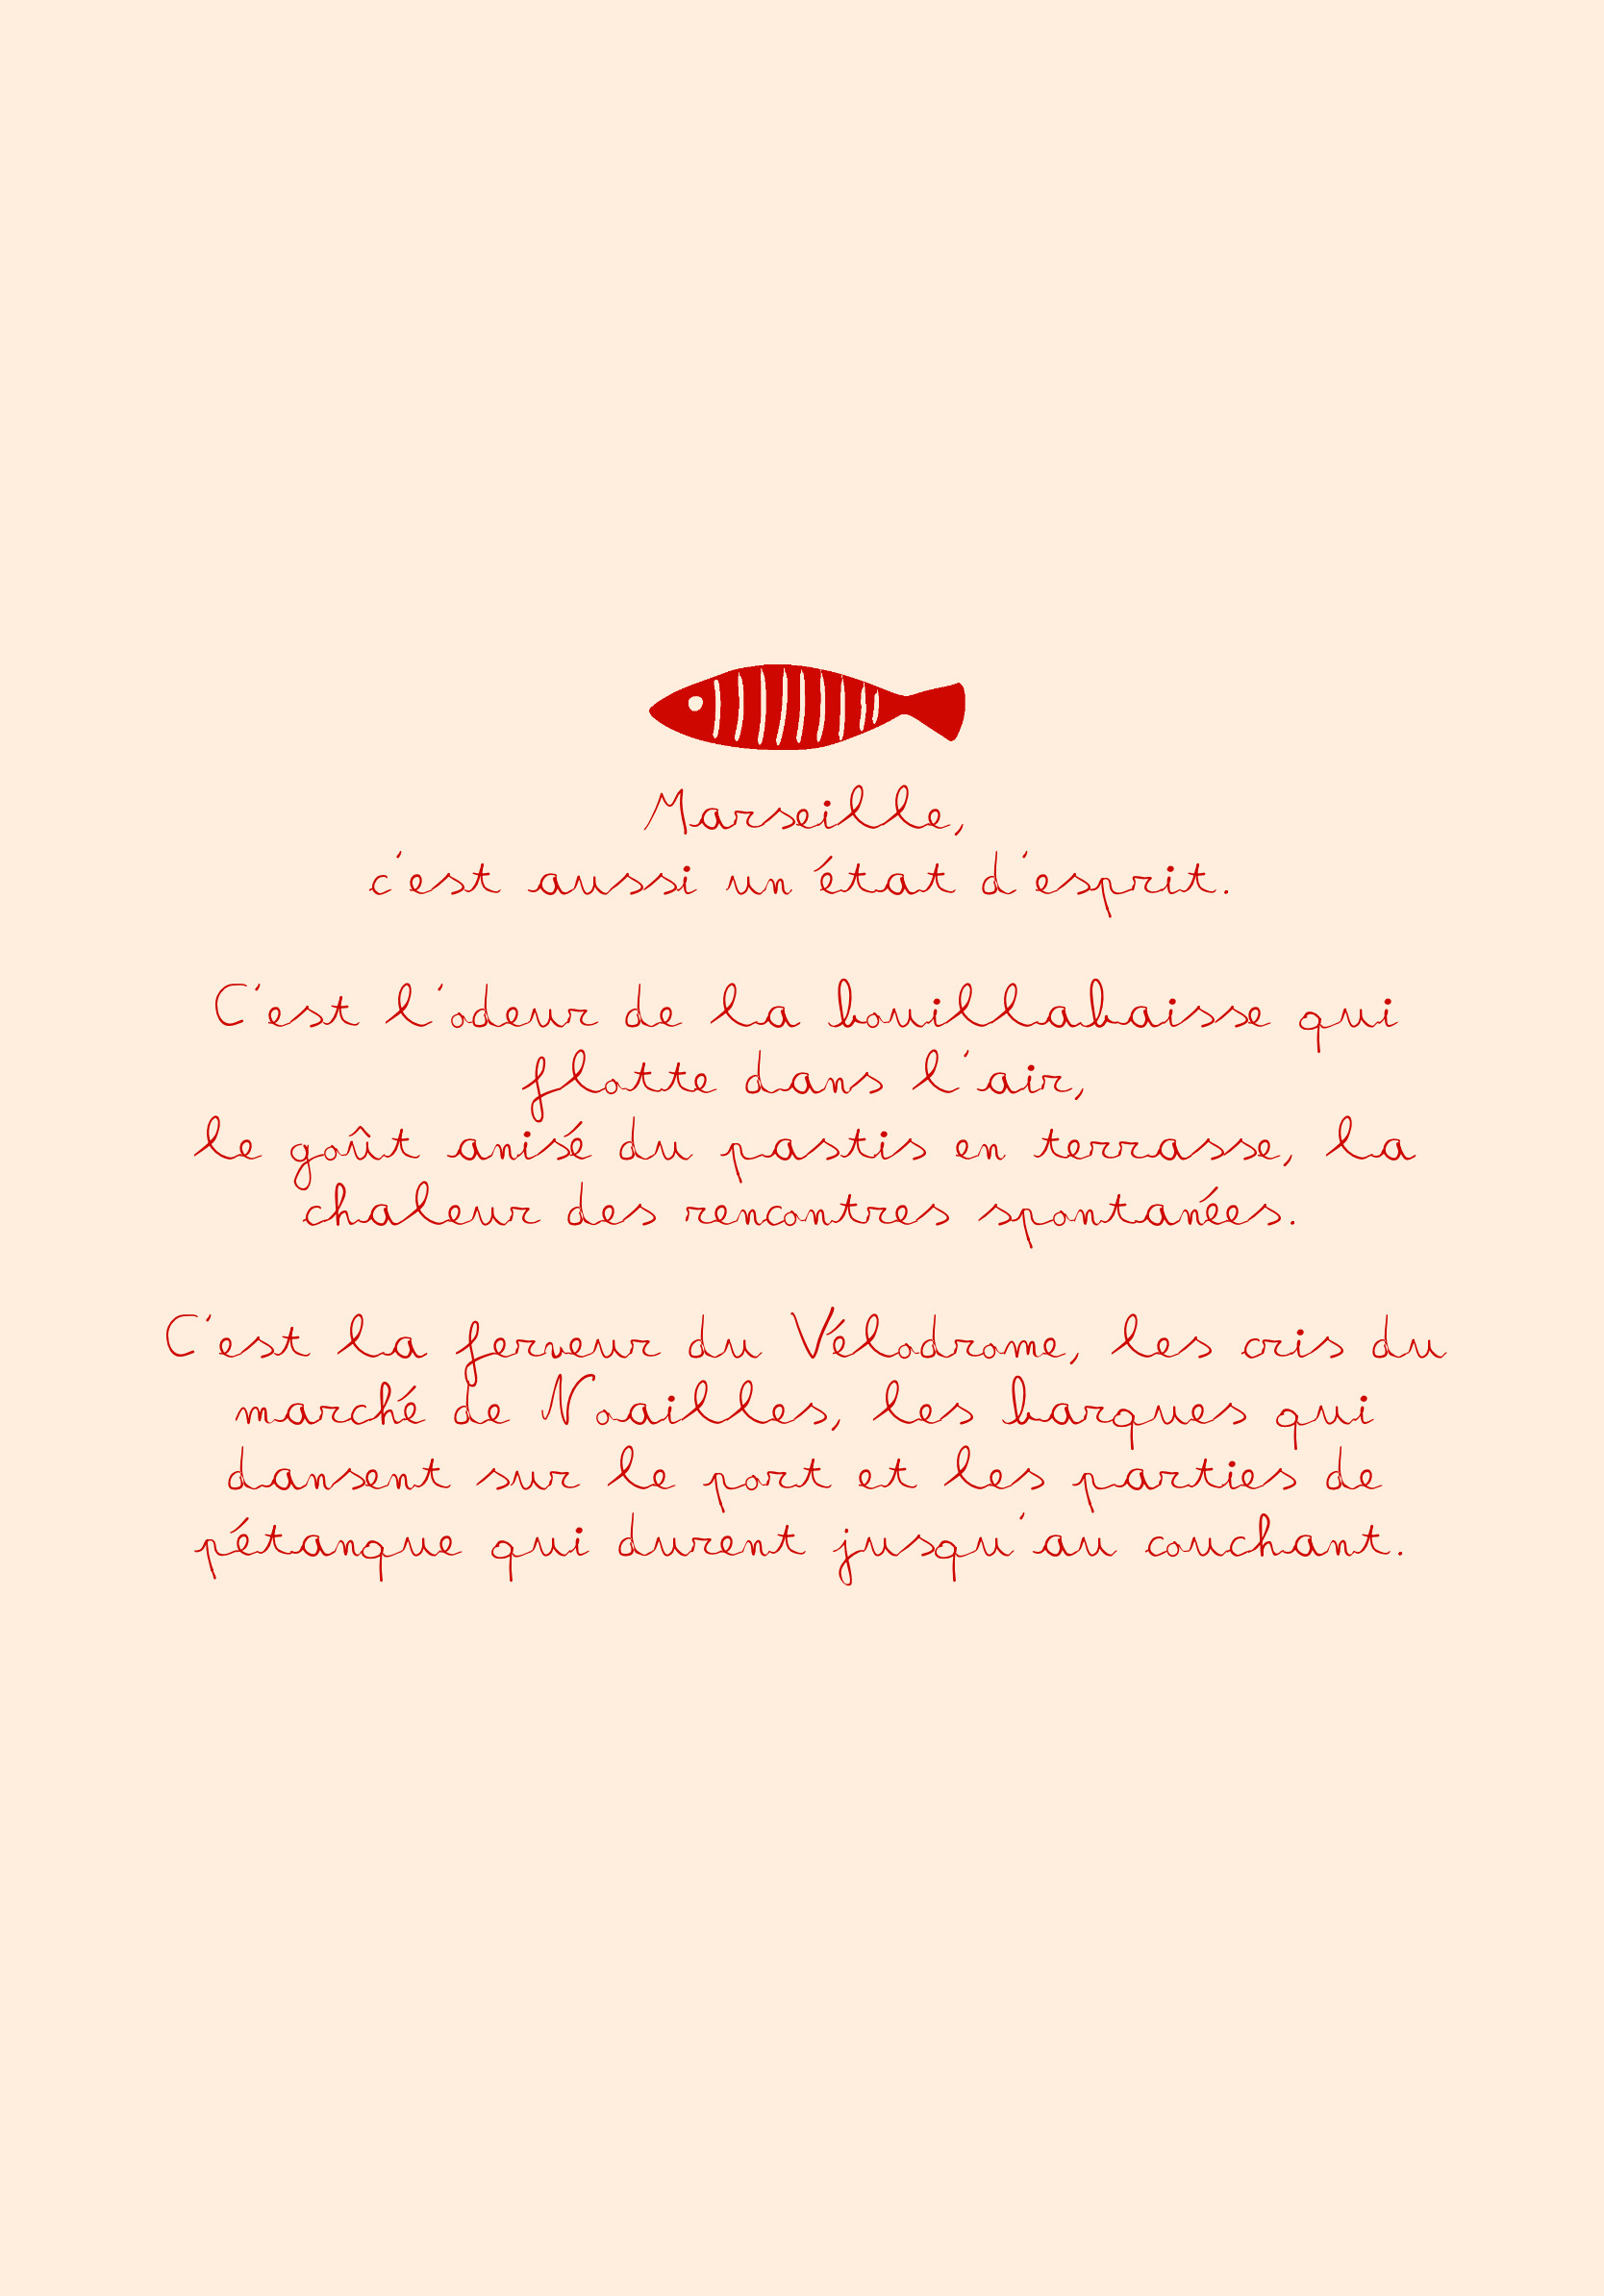 Marseille,
c'est aussi un état d'esprit.
C'est l'odeur de la bouillabaisse qui
flotte dans l'air,
le goût anisé du pastis en terrasse, la
chaleur des rencontres spontanées.
C'est la ferveur du Vélodrome, les cris du
marché de Noailles, les barques qui
dansent sur le port et les parties de
pétanque qui durent jusqu'au couchant.